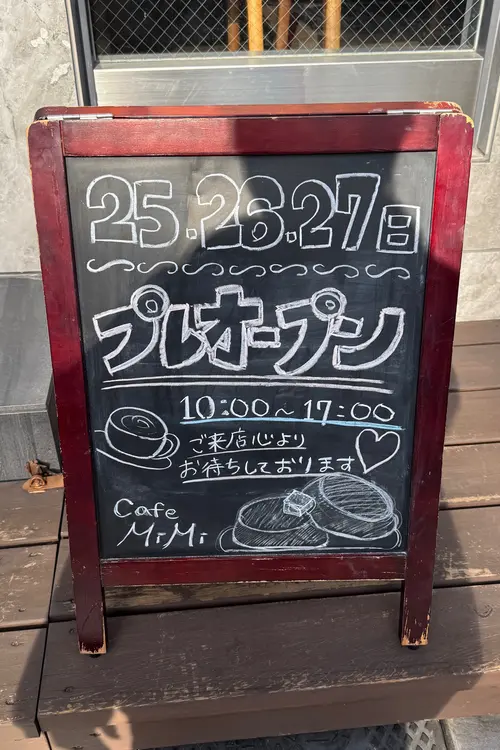 25.26.27日
プレオープン
10:00~17:00
ご来店心より
お待ちしております
Cafe
MiMi